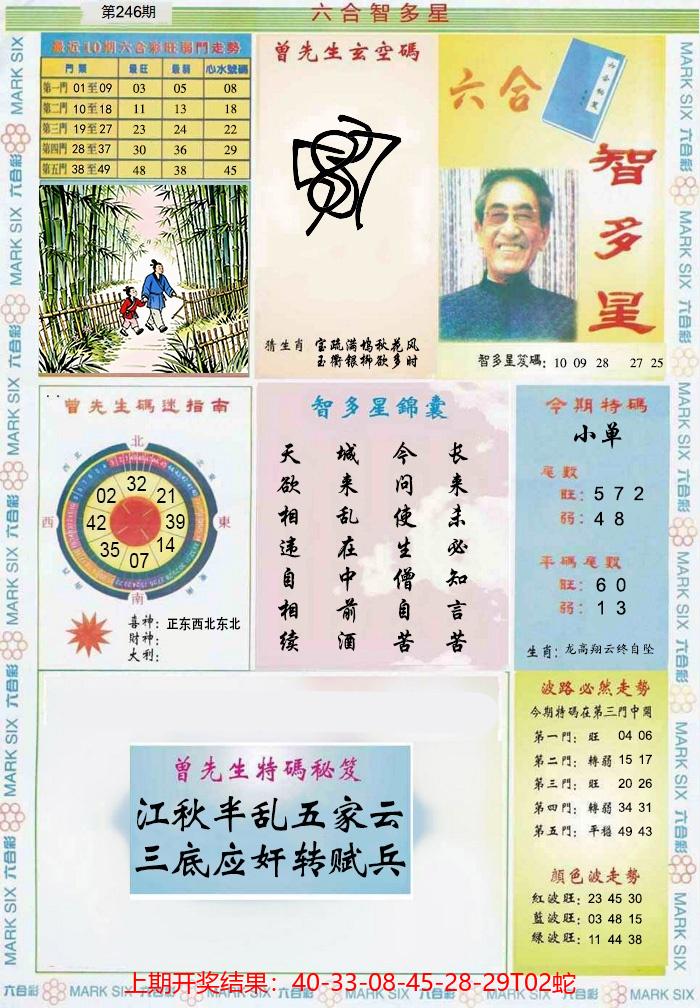 第246期
六合智多星
最近10期六合彩旺弱門走勢
門類 最旺 最弱 心水號碼
第一門 01至09 03 05 08
第二門 10至18 11 13 18
第三門 19至27 23 24 22
第四門 28至37 30 36 29
第五門 38至49 48 38 45
曾先生玄空碼
猜生肖 宝疏满坞秋花风
玉衢银柳欲多时
六合
智多星
智多星笈碼: 10 09 28 27 25
曾先生碼迷指南
北
西 東
南
02 32 21
42 39
35 14
07
喜神: 正东西北东北
財神:
大利:
智多星錦囊
天 城 今 长
欲 来 问 来
相 乱 使 未
违 在 生 必
自 中 僧 知
相 前 自 言
续 酒 苦 苦
今期特碼
小单
尾數
旺: 5 7 2
弱: 4 8
平碼尾數
旺: 6 0
弱: 1 3
生肖: 龙高翔云终自坠
曾先生特碼秘笈
江秋半乱五家云
三底应奸转赋兵
波路必然走勢
今期特碼在第三門中開
第一門: 旺 04 06
第二門: 轉弱 15 17
第三門: 旺 20 26
第四門: 轉弱 34 31
第五門: 平穩 49 43
顔色波走勢
紅波旺: 23 45 30
藍波旺: 03 48 15
綠波旺: 11 44 38
上期开奖结果：40-33-08-45-28-29T02蛇
六合彩 MARK SIX 六合彩 MARK SIX 六合彩 MARK SIX 六合彩 MARK SIX 六合彩